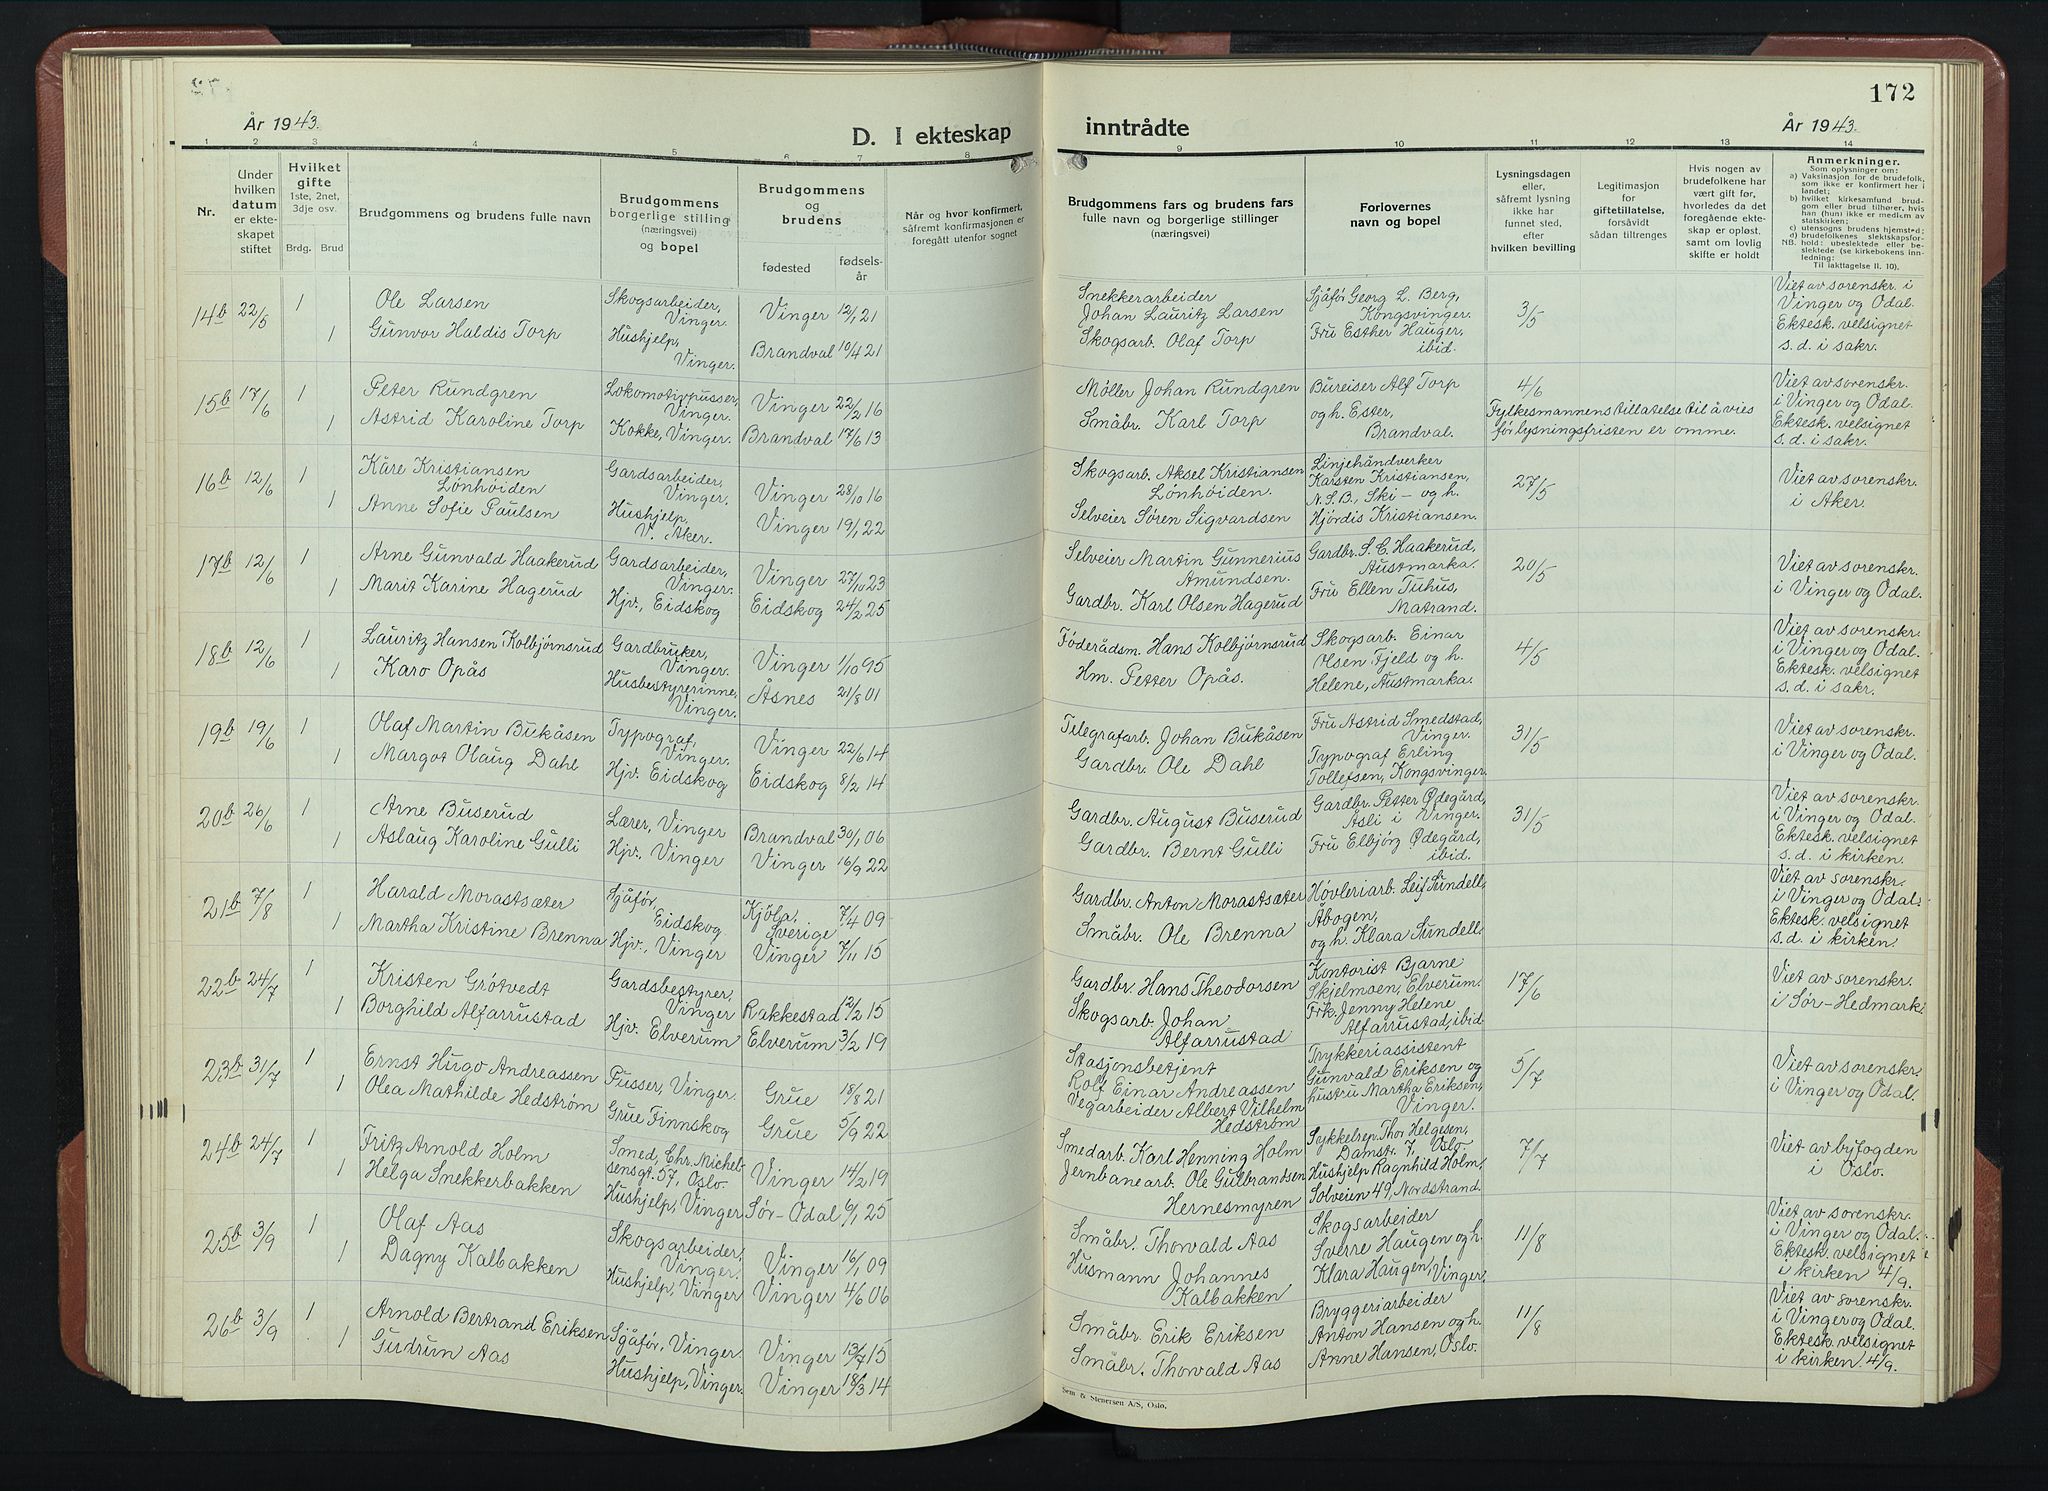 172
År 1943.
D. I ekteskap
inntrådte
År 1943.
1 2 3 4 5 6 7 8
9 10 11 12 13 14
Nr.
Under
hvilken
datum
er ekte-
skapet
stiftet
Hvilket
gifte
1ste, 2net,
3dje osv.
Brdg. Brud
Brudgommens og brudens fulle navn
Brudgommens
borgerlige stilling
(næringsvei)
og bopel
Brudgommens
og
brudens
fødested
fødsels-
år
Når og hvor konfirmert,
såfremt konfirmasjonen er
foregått utenfor sognet
Brudgommens fars og brudens fars
fulle navn og borgerlige stillinger
(næringsvei)
Forlovernes
navn og bopel
Lysningsdagen
eller,
såfremt lysning
ikke har
funnet sted,
efter
hvilken bevilling
Legitimasjon
for
giftetillatelse,
forsåvidt
sådan tiltrenges
Hvis nogen av
brudefolkene har
vært gift før,
hvorledes da det
foregående ekte-
skap er opløst,
samt om lovlig
skifte er holdt
Anmerkninger.
Som oplysninger om:
a) Vaksinasjon for de brudefolk,
som ikke er konfirmert her i
landet;
b) hvilket kirkesamfund brud-
gom eller brud tilhører, hvis
han (hun) ikke er medlem av
statskirken;
c) utensogns brudens hjemsted;
d) brudefolkenes slektskapsfor-
NB. hold: ubeslektede eller be-
slektede (se kirkebokens inn-
ledning:
Til iakttagelse II. 10).
14b 22/5 1 Ole Larsen
Skogsarbeider,
Vinger.
Vinger 12/1 21
1 Gunvor Haldis Torp
Hushjelp,
Vinger.
Brandval 10/4 21
Snekkerarbeider
Johan Lauritz Larsen
Skogsarb. Olaf Torp
Sjåfør Georg L. Berg,
Kongsvinger.
Fru Esther Hauger,
ibid.
3/5
Viet av sorenskr. i
Vinger og Odal.
Ektesk. velsignet
s. d. i sakr.
15b 17/6 1 Peter Rundgren
Lokomotivpusser,
Vinger.
Vinger 22/2 16
1 Astrid Karoline Torp
Kokke, Vinger.
Brandval 17/6 13
Møller Johan Rundgren
Småbr. Karl Torp
Bureiser Alf Torp
og h. Ester,
Brandval.
4/6
Fylkesmannens tillatelse til å vies
før lysningsfristen er omme.
Viet av sorenskr.
i Vinger og Odal.
Ektesk. velsignet
s. d. i sakr.
16b 12/6 1 Kåre Kristiansen
Lønhøiden
Gardsarbeider,
Vinger.
Vinger 28/10 16
1 Anne Sofie Paulsen
Hushjelp,
V. Aker.
Vinger 19/1 22
Skogsarb. Aksel Kristiansen
Lønhøiden.
Selveier Søren Sigvardsen
Linjehåndverker
Karsten Kristiansen,
N.S.B., Ski - og h.
Hjørdis Kristiansen.
27/5
Viet av sorenskr.
i Aker.
17b 12/6 1 Arne Gunvald Haakerud
Gardsarbeider,
Vinger.
Vinger 27/10 23
1 Marit Karine Hagerud
Hjv., Eidskog
Eidskog 24/2 25
Selveier Martin Gunnerius
Amundsen.
Gardbr. Karl Olsen Hagerud
Gardbr. S. C. Haakerud,
Austmarka.
Fru Ellen Tuhus,
Matrand.
20/5
Viet av sorenskr.
i Vinger og Odal.
18b 12/6 1 Lauritz Hansen Kolbjørnsrud
Gardbruker,
Vinger.
Vinger 1/10 95
1 Karo Opås
Husbestyrerinne,
Vinger.
Åsnes 21/8 01
Føderådsm. Hans Kolbjørnsrud
Hm. Petter Opås.
Skogsarb. Einar
Olsen Fjeld og h.
Helene, Austmarka.
4/5
Viet av sorenskr.
i Vinger og Odal.
Ektesk. velsignet
s. d. i sakr.
19b 19/6 1 Olaf Martin Bukåsen
Typograf,
Vinger.
Vinger 22/6 14
1 Margot Olaug Dahl
Hjv. Eidskog
Eidskog 8/2 14
Telegrafarb. Johan Bukåsen
Gardbr. Ole Dahl
Fru Astrid Smedstad,
Vinger.
Typograf Erling
Tollefsen, Kongsvinger.
31/5
Viet av sorenskr.
i Vinger og Odal.
20b 26/6 1 Arne Buserud
Lærer, Vinger
Brandval 30/1 06
1 Aslaug Karoline Gulli
Hjv., Vinger
Vinger 16/9 22
Gardbr. August Buserud
Gardbr. Bernt Gulli
Gardbr. Petter Ødegård,
Åsli i Vinger.
Fru Elbjørg Ødegård,
ibid.
31/5
Viet av sorenskr.
i Vinger og Odal.
Ektesk. velsignet
s. d. i kirken.
21b 7/8 1 Harald Morastsæter
Sjåfør,
Eidskog
Kjøla,
Sverige 7/4 09
1 Martha Kristine Brenna
Hjv., Vinger
Vinger 7/11 15
Gardbr. Anton Morastsæter
Småbr. Ole Brenna
Høvleriarb. Leif Sundell,
Åbogen,
og h. Klara Sundell
Viet av sorenskr.
i Vinger og Odal.
Ektesk. velsignet
s. d. i kirken.
22b 24/7 1 Kristen Grøtvedt
Gardsbestyrer,
Vinger
Rakkestad 12/2 15
1 Borghild Alfarrustad
Hjv. Elverum
Elverum 3/2 19
Gardbr. Hans Theodorsen
Skogsarb. Johan
Alfarrustad
Kontorist Bjarne
Skjelmoen, Elverum.
Frk. Jenny Helene
Alfarrustad, ibid.
17/6
Viet av sorenskr.
i Sør-Hedmark.
23b 31/7 1 Ernst Hugo Andreassen
Pusser, Vinger.
Grue 18/8 21
1 Olea Mathilde Hedstrøm
Grue Finnskog
Grue 5/9 22
Stasjonsbetjent
Rolf Einar Andreassen
Vegarbeider Albert Vilhelm
Hedstrøm
Trykkeriassistent
Gunvald Eriksen og
hustru Martha Eriksen,
Vinger.
5/7
Viet av sorenskr.
i Vinger og Odal.
24b 24/7 1 Fritz Arnold Holm
Smed, Chr. Michel-
sensgt. 57, Oslo.
Vinger 14/2 19
1 Helga Snekkerbakken
Hushjelp, Vinger
Sør-Odal 6/1 25
Smedarb. Karl Henning Holm
Jernbanearb. Ole Gulbrandsen
Hernesmyren
Sykkelrep. Thor Helgesen,
Damstr. 7, Oslo
Hushjelp Ragnhild Holm,
Solveien 49, Nordstrand.
7/7
Viet av byfogden
i Oslo.
25b 3/9 1 Olaf Aas
Skogsarbeider,
Vinger.
Vinger 16/1 09
1 Dagny Kalbakken
Hushjelp, Vinger
Vinger 4/6 06
Småbr. Thorvald Aas
Husmann Johannes
Kalbakken
Skogsarbeider
Sverre Haugen og h.
Klara Haugen, Vinger.
11/8
Viet av sorenskr.
i Vinger og Odal.
Ektesk. velsignet
i kirken 4/9.
26b 3/9 1 Arnold Bertrand Eriksen
Sjåfør, Vinger.
Vinger 13/7 15
1 Gudrun Aas
Hushjelp, Vinger.
Vinger 18/3 14
Småbr. Erik Eriksen
Småbr. Thorvald Aas
Bryggeriarbeider
Anton Hansen og h.
Anne Hansen, Oslo.
11/8
Viet av sorenskr.
i Vinger og Odal.
Ektesk. velsignet
i kirken 4/9.
Sem & Stenersen A/S, Oslo.